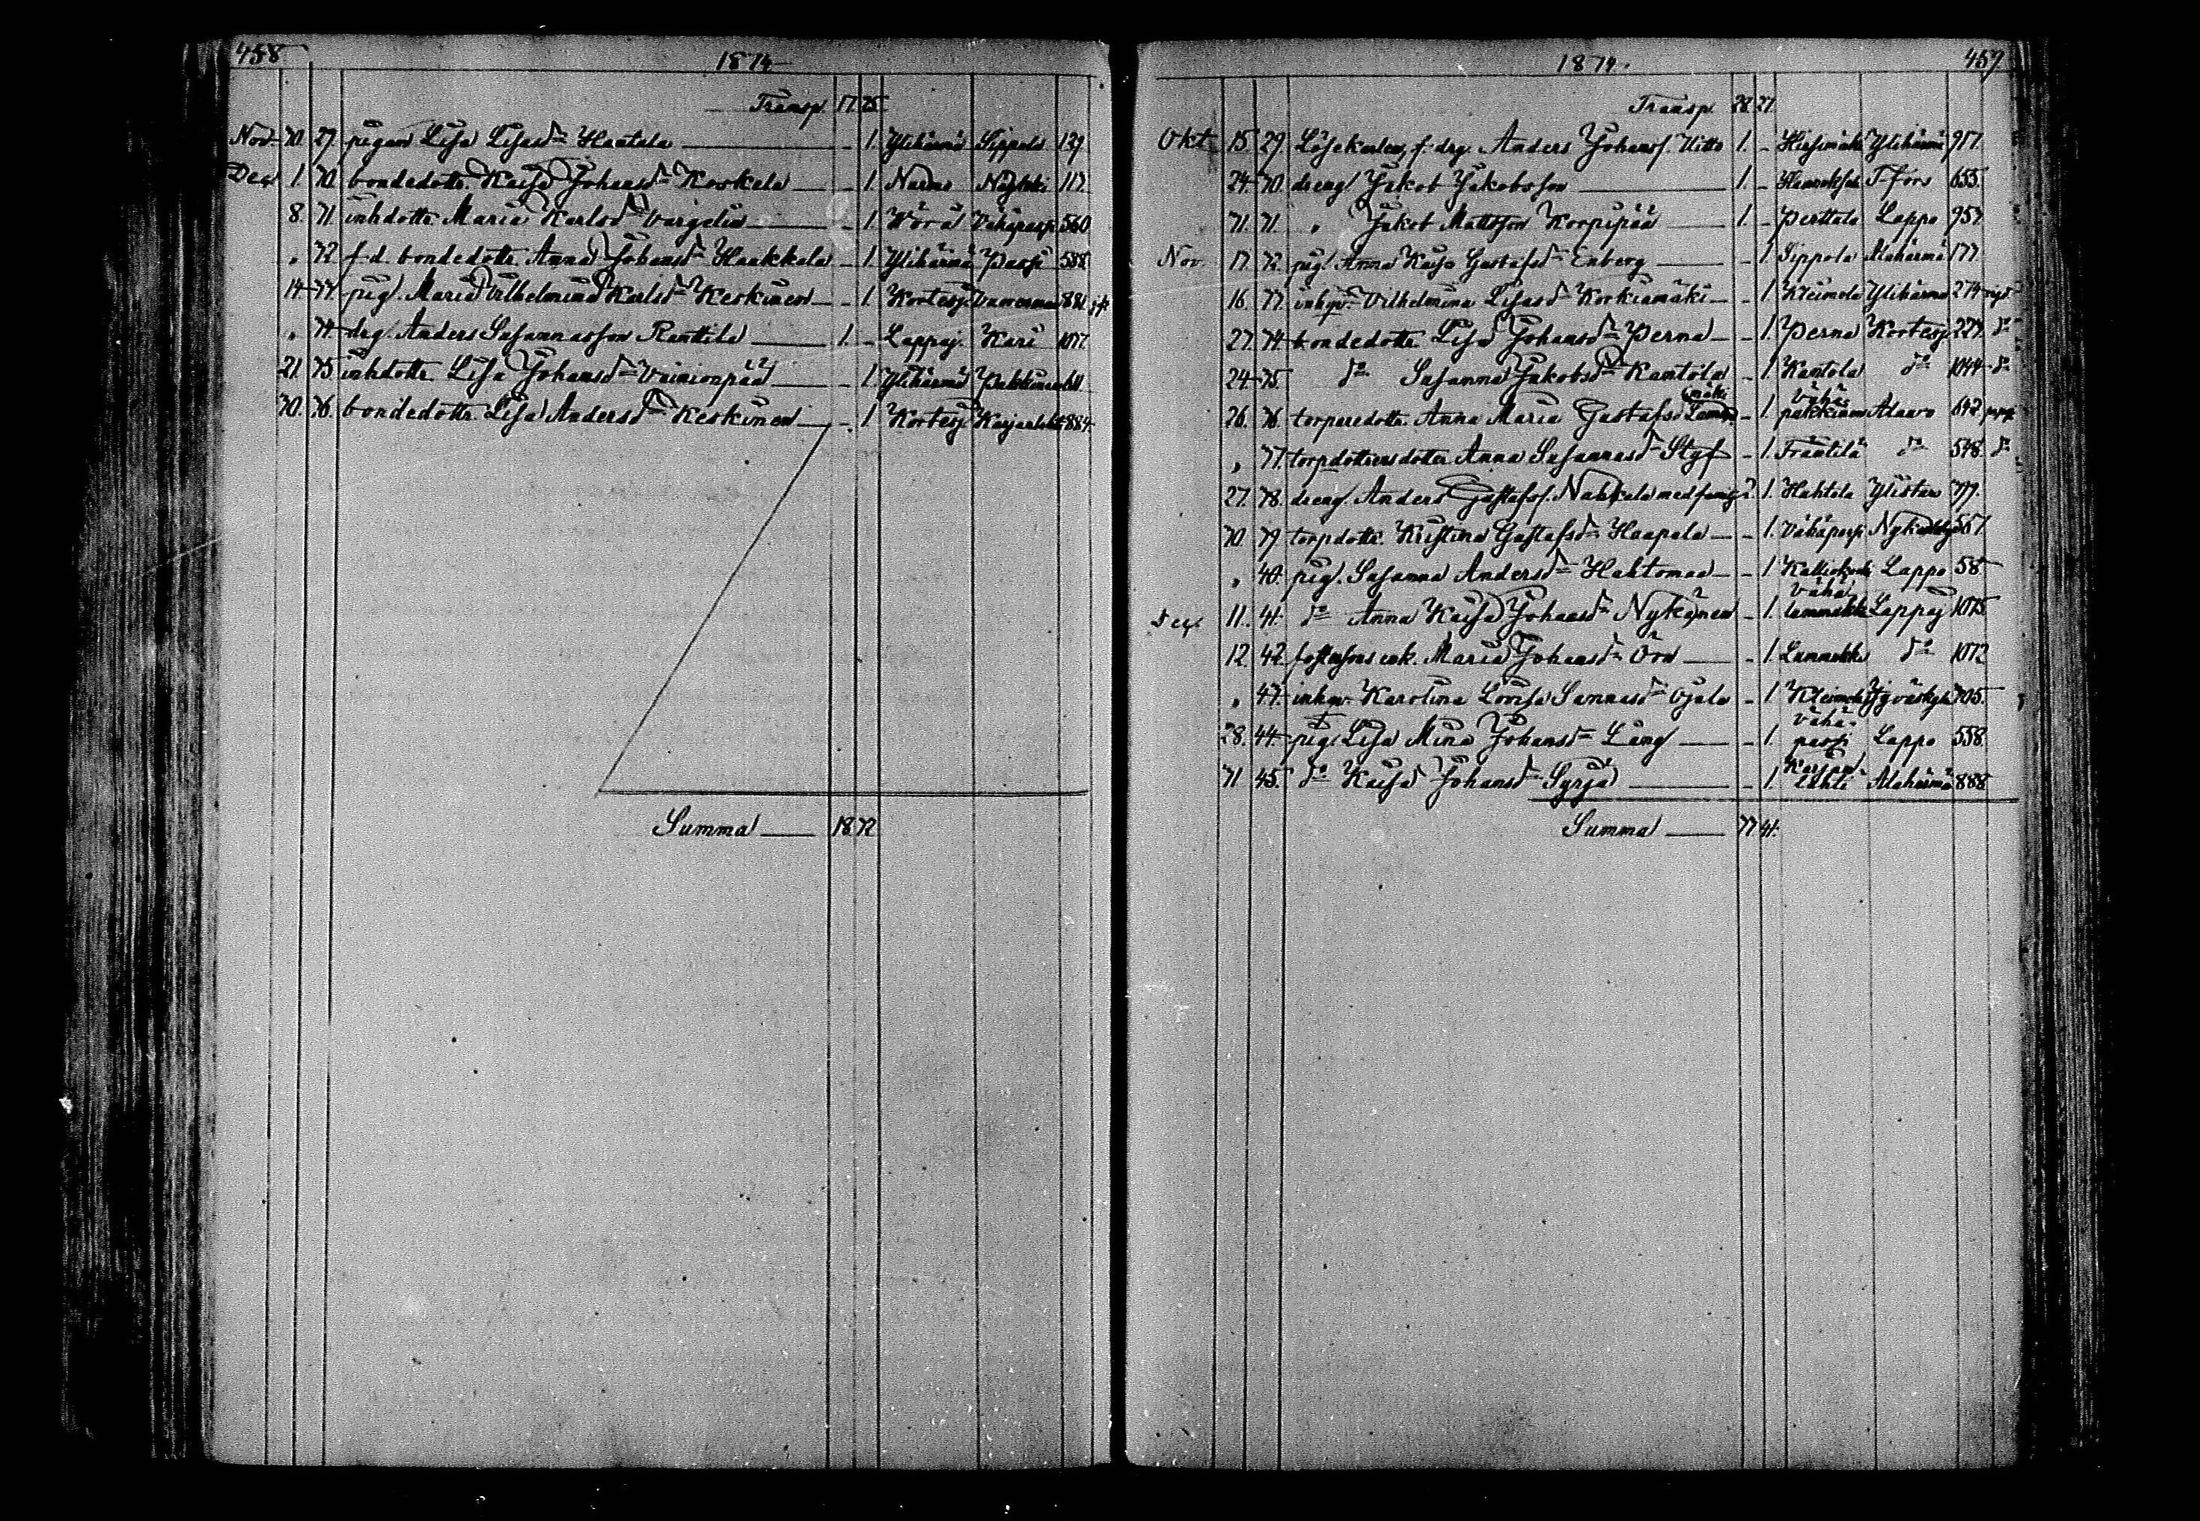 458 1874
Transp. 17. 25.
Nov. 30. 29. pigan Lisa Lisasdr Haatala — 1. Ylihärmä Sippola 129.
Dec. 1. 30. bondedottr. Kaisa Johansdr Koskela — 1. Nurmo 117.
8. 31. inhdottr Maria Karlsdr Vargelin — 1. Vörå Vähäpassi 560.
" 32. f.d. bondedottr. Anna Johansdr Haakkela — 1. Ylihärmä Passi 538.
14. 33. pig. Maria Vilhelmina Karlsdr Keskinen — 1. Kortesj. 881
" 34. drg. Anders Susannasson Ranttila 1. — Lappaj. Kari 1077.
21. 35. inhdottr Lisa Johansdr Vainionpää — 1. Ylihärmä
30. 36. bondedottr. Lisa Andersdr Keskinen — 1. Kortesj. Karjanlahti 884.
Summa 18 32
1874. 459.
Transp. 28. 27.
Okt. 15. 29. Löskarlen, f. drg. Anders Johanss. Uitto 1. — Hirsimäki Ylihärmä 917.
24. 30. dreng. Jakob Jakobsson 1. — T-fors 655.
31. 31. " Jakob Mattsson Korpipää 1. — Perttula Lappo 957
Nov. 13. 32. pig. Anna Kaisa Gustafsdr Enberg — 1. Sippola Alahärmä 133
16. 33. inhqv. Vilhelmina Lisasdr Korkiamäki — 1. Kleimola Ylihärmä 274
23. 34. bondedottr Lisa Johansdr Perna — 1. Perna Kortesj. 229. do
24. 35. do Susanna Jakobsdr Kantola — 1. Kantola do 1044. do
26. 36. torparedottr. Anna Maria Gustafsdr — 1. Vähä- Adaavo 642
" 37. torpdottrens dotter Anna Susannasdr Styf — 1. Fräntilä do 548. do
27. 38. dreng. Anders Gustafss. med familj 2. 1. Hahtola Ylistaro
30. 39. torpdottr. Kristina Gustafsdr Haapala — 1. Vähäpassi 567.
" 40. pig. Susanna Andersdr Hahtomaa — 1. Lappo 58.
Dec. 11. 41. do Anna Kaisa Johansdr Nykänen — 1. Vähälammikko Lappaj 1075.
12. 42. Maria Johansdr Örn — 1. Lammikko do 1072
" 43. inhqv. Karolina Lovisa Sannasdr Ojala — 1. Kleimola Jyväskylä 305.
28. 44. pig. Lisa Mina Johansdr Lång — 1. Vähä-passi Lappo 558.
31 45. do Kaisa Johansdr Syrjä — 1. Karjanlahti Alahärmä 888.
Summa 33 41.